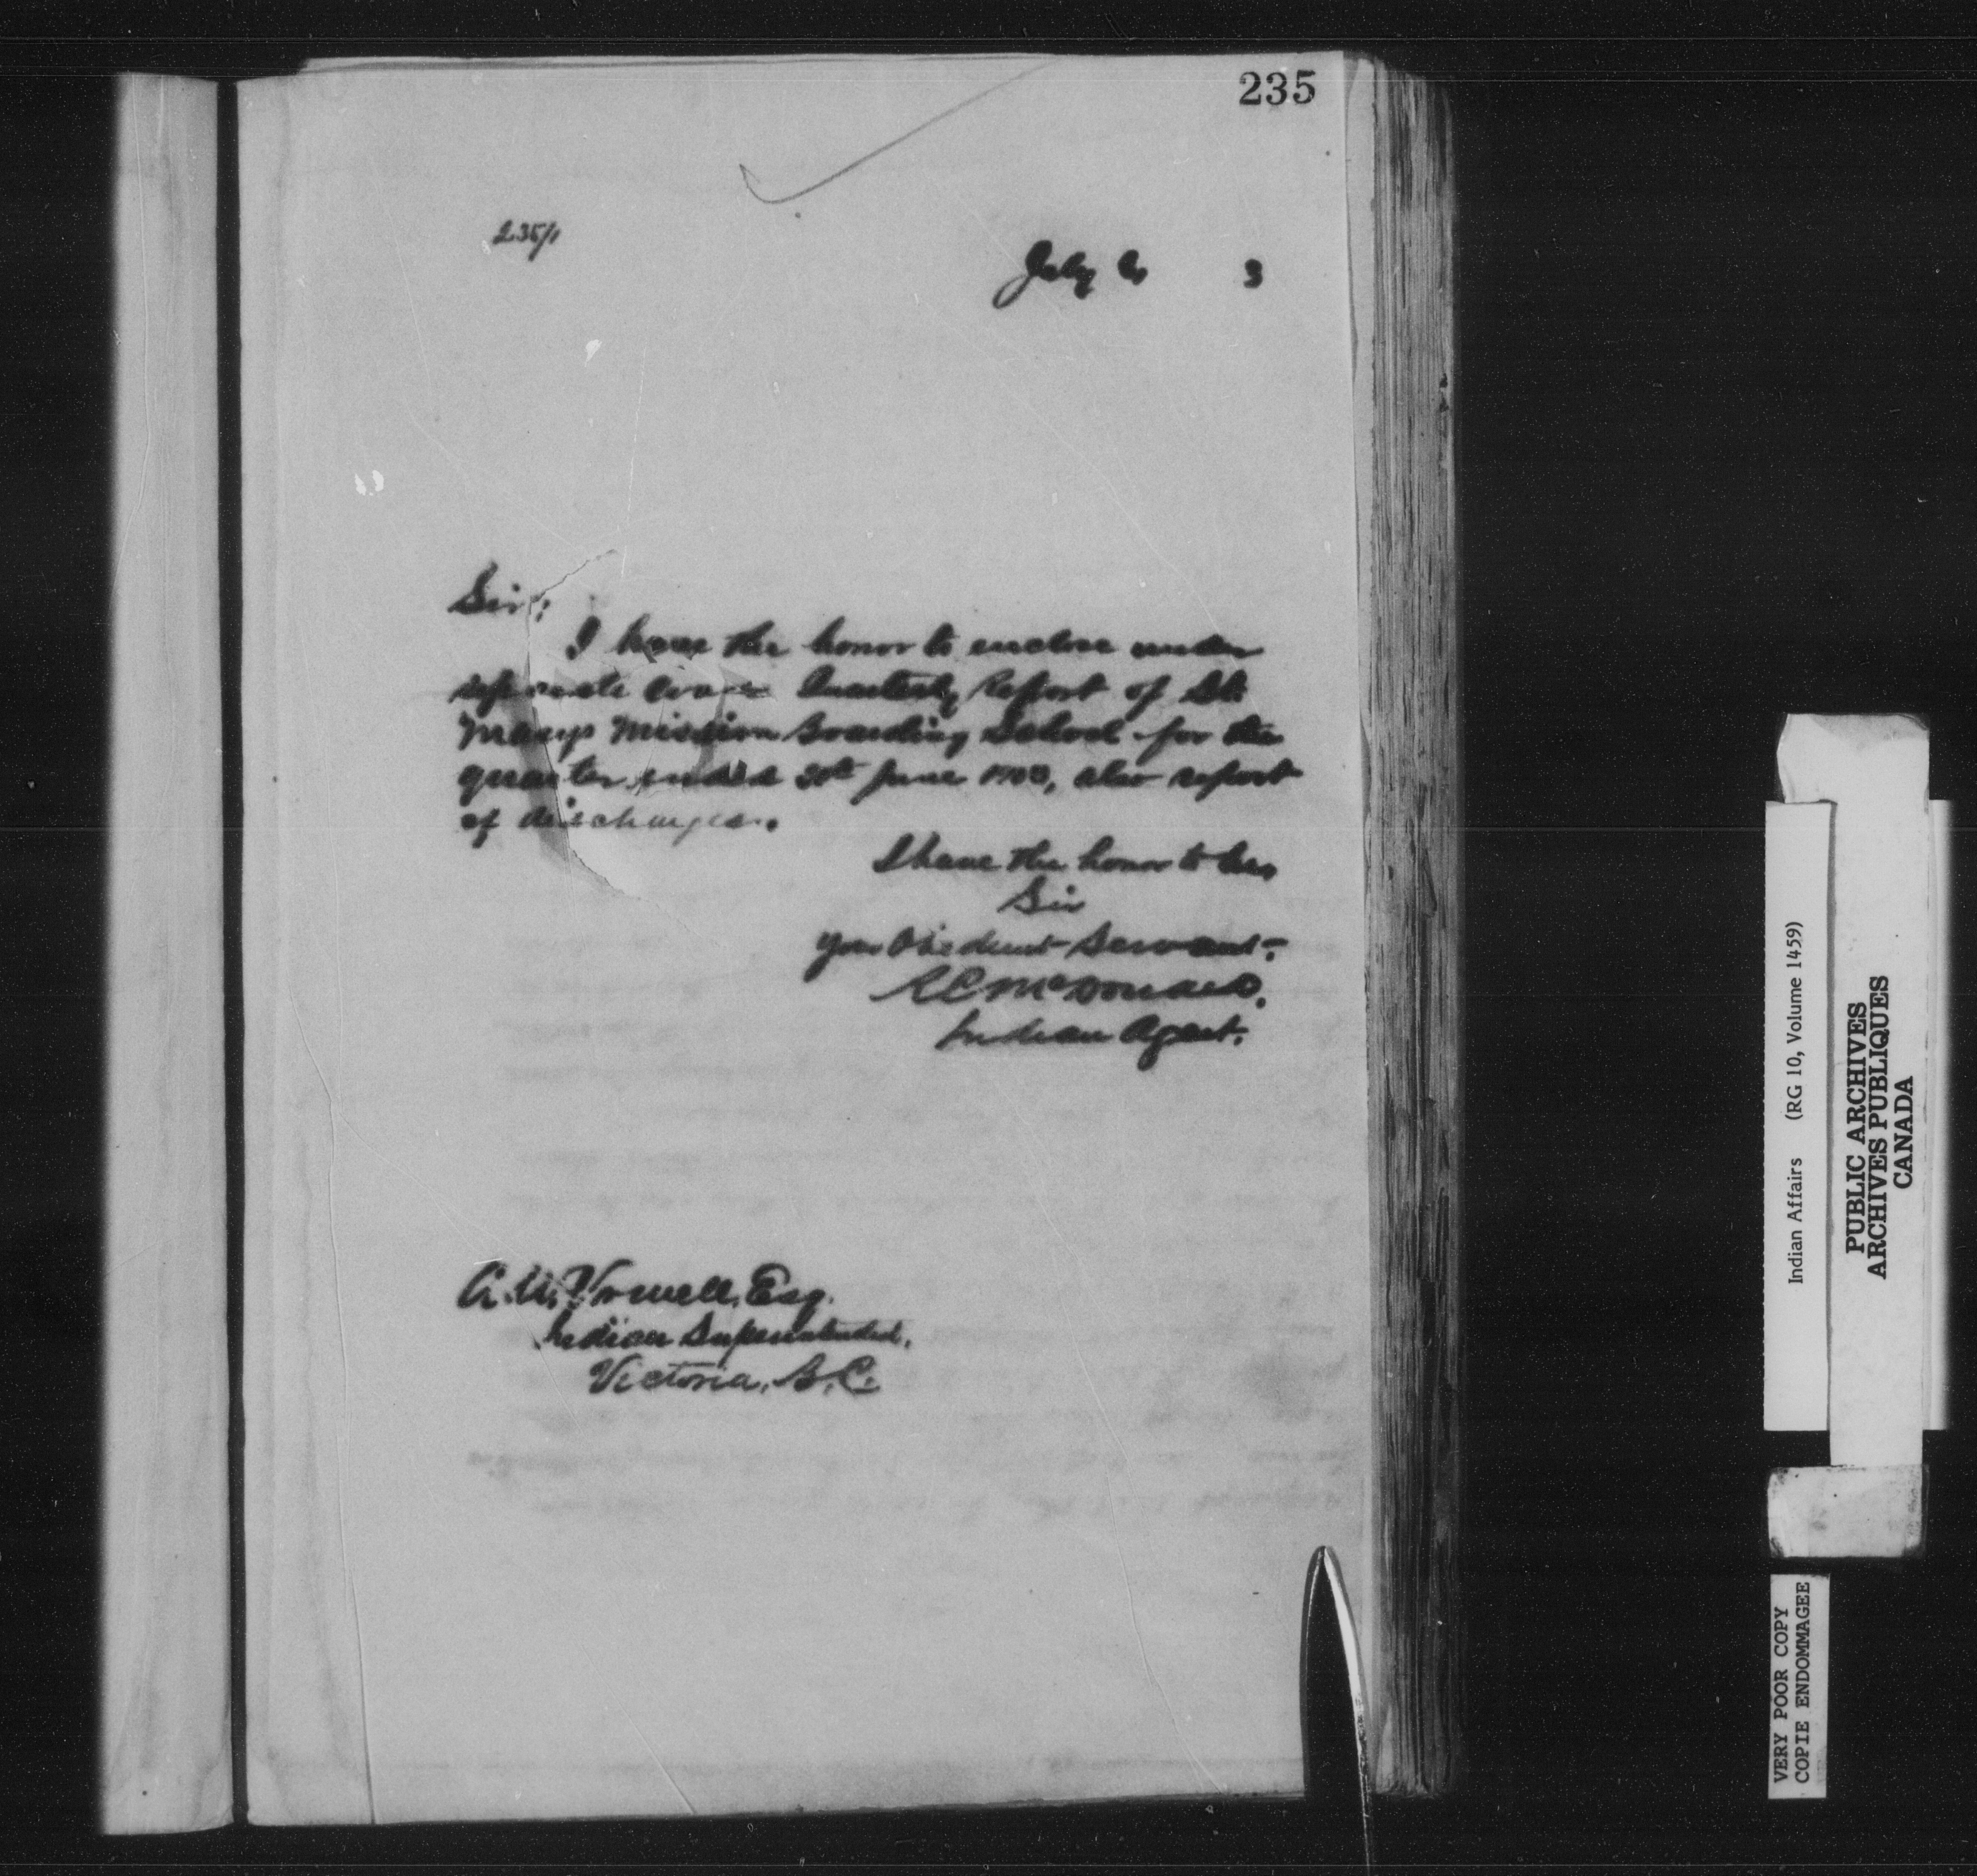 235
235/1
July 6 3
Sir:
I have the honor to enclose under
separate cover Quarterly Report of St.
Marys Mission Boarding School for the
quarter ended 30th June 1903, also report
of discharges.
I have the honor to be,
Sir
Your Obedient Servant,
R C McDonald.
Indian Agent.
A. W. Vowell, Esq.
Indian Superintendent,
Victoria, B.C.
Indian Affairs (RG 10, Volume 1459)
PUBLIC ARCHIVES
ARCHIVES PUBLIQUES
CANADA
VERY POOR COPY
COPIE ENDOMMAGEE